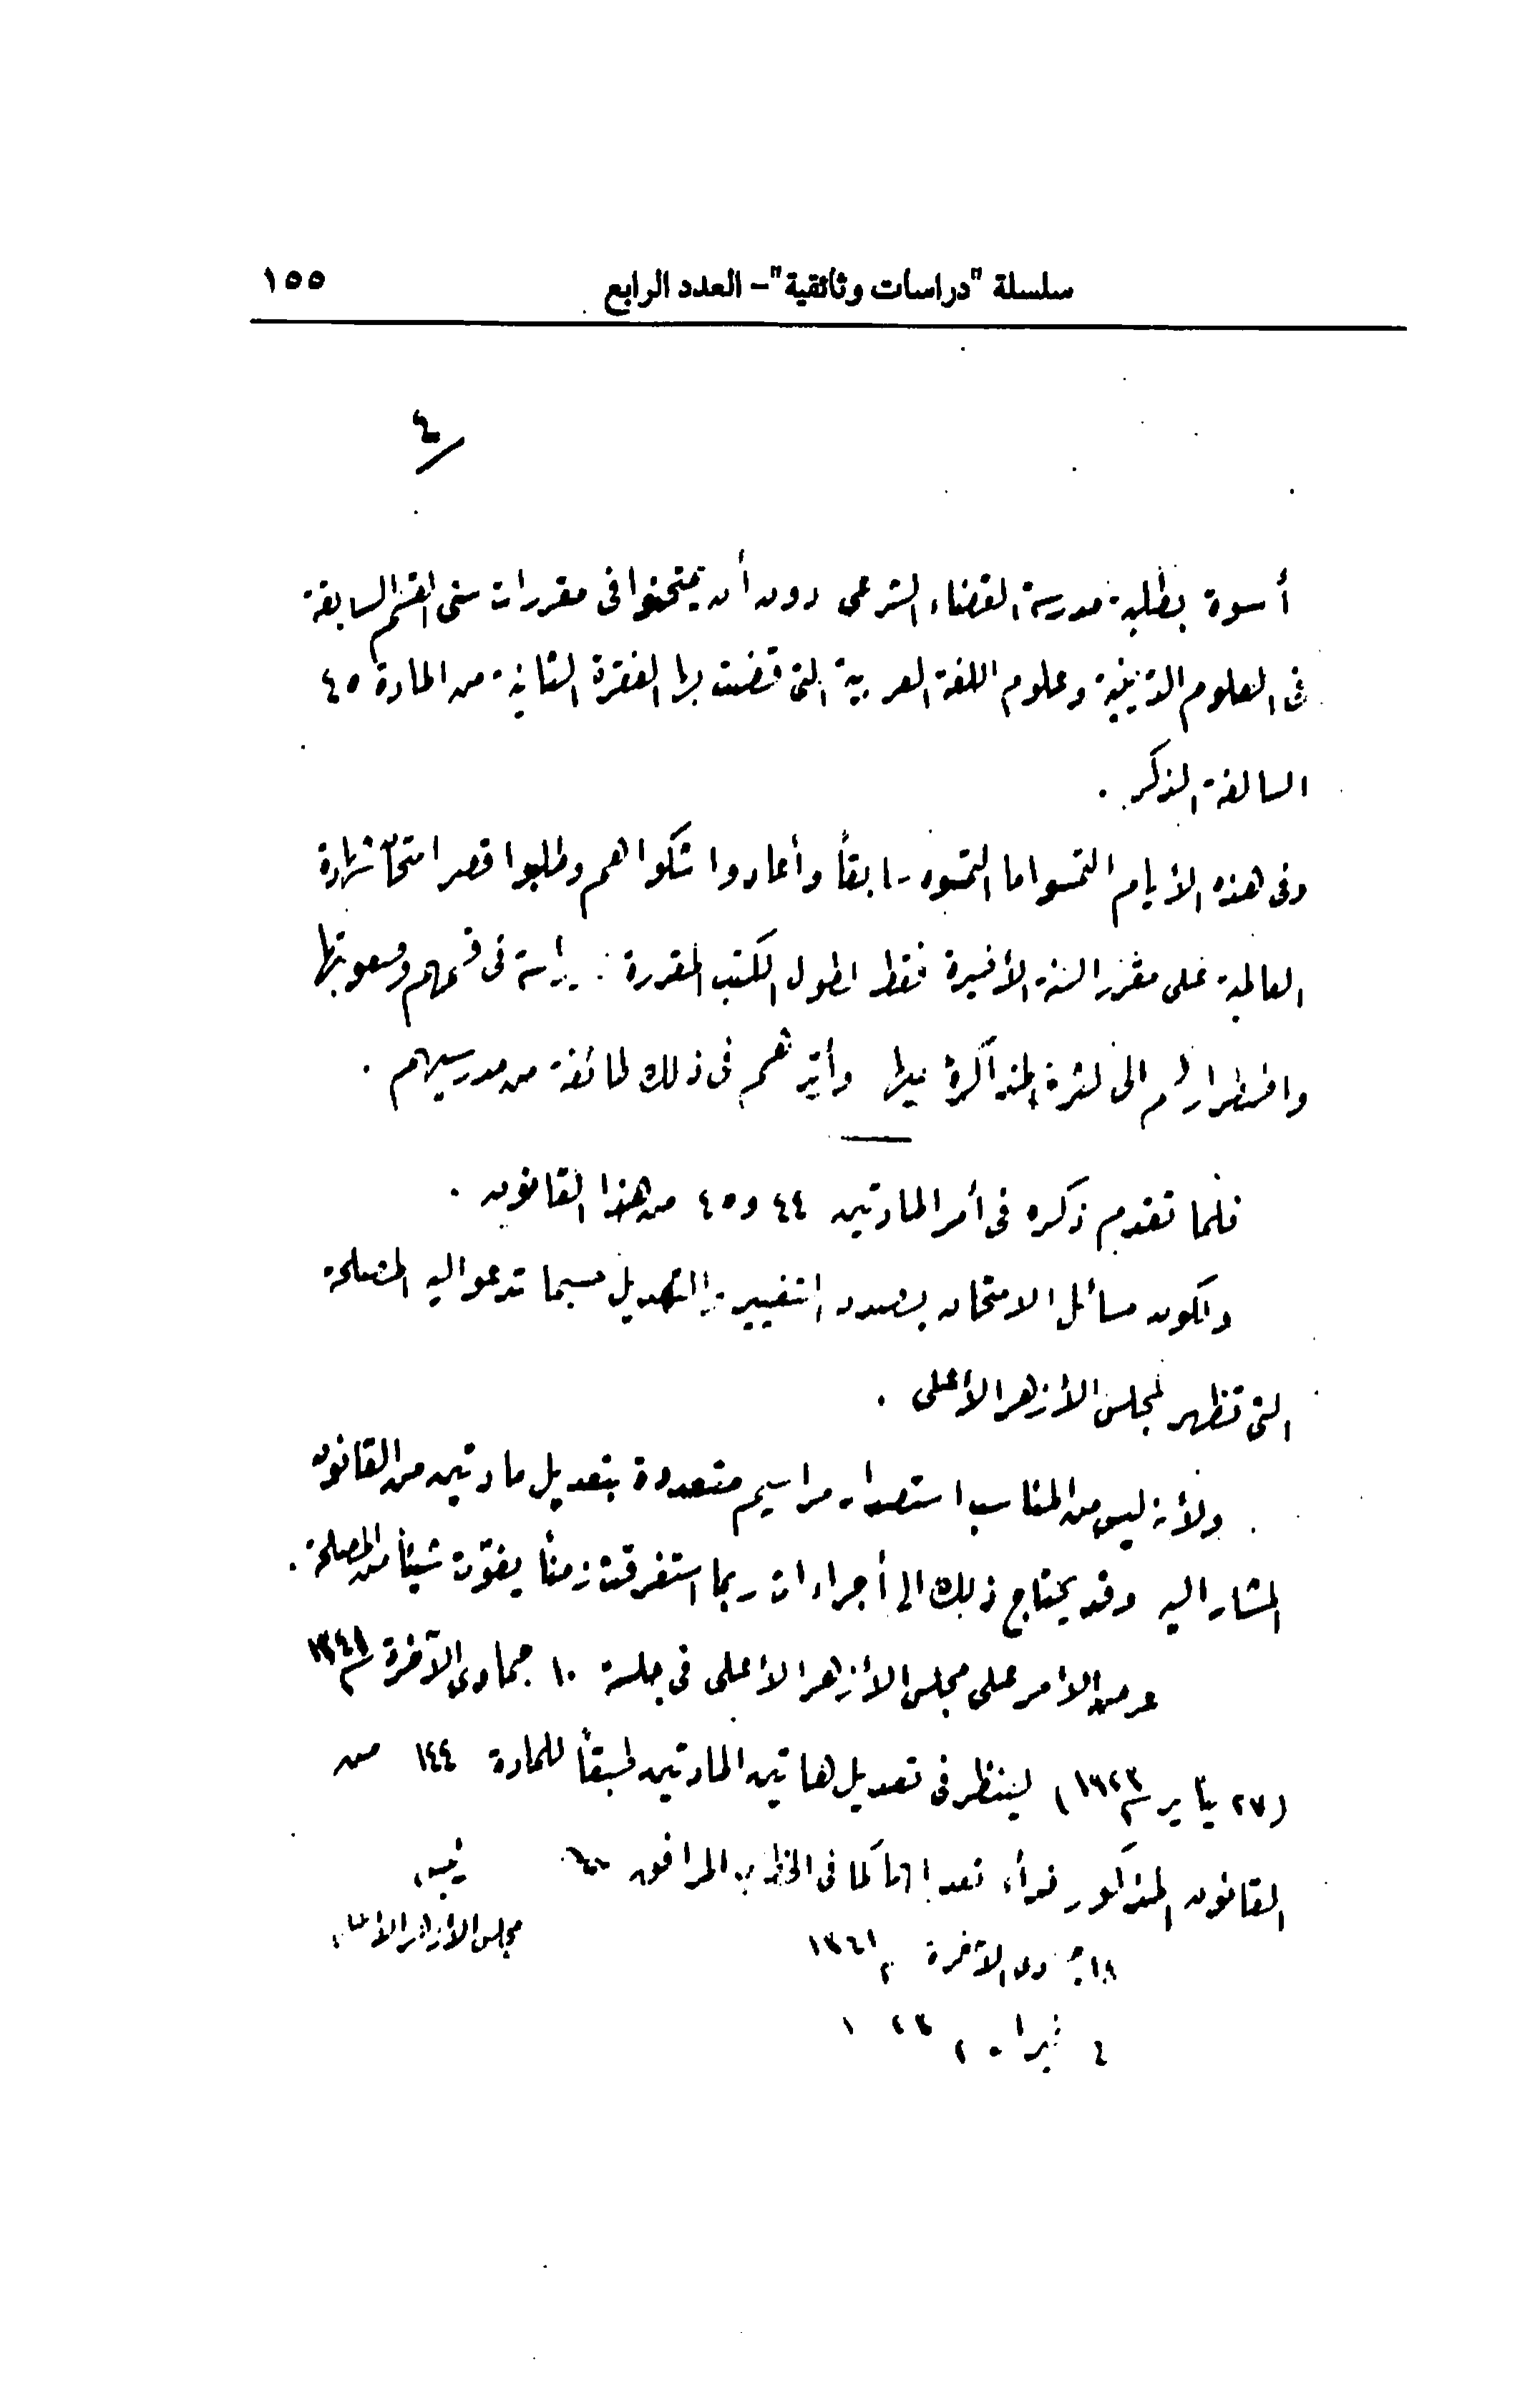 سلسلة "دراسات وثائقية" – العدد الرابع ١٥٥
٤
أسوة بطلبة مدرسة القضاء الشرعى دون أن يمتحنوا فى مقررات سنى القسم السابقة
فى العلوم الدينية وعلوم اللغة العربية التى قضت بها الفقرة الثانية من المادة ٤٥
السالفة الذكر .
وفى هذه الأيام التمسوا ما التمسوه سابقاً وأعادوا شكواهم وطلبوا قصر امتحان شهادة
العالمية على مقرر السنة الأخيرة فقط لطول الكتب المقررة دراسة فى قسمهم وصعوبتها
واضطرارهم الى كثرة المذاكرة فيها وأيدهم فى ذلك طائفة من مدرسيهم .
فلما تقدم ذكره فى أمر المادتين ٤٤ و ٤٥ من هذا القانون .
ولكون مسائل الامتحان بصدد التغيير والتعديل حسبما تدعو اليه المصلحة
التى تظهر لمجلس الأزهر الأعلى .
ولأنه ليس من المناسب استصدار مراسيم متعددة بتعديل مادتين من القانون
المشار اليه وقد يحتاج ذلك الى أجراءات ربما استغرقت زمناً يفوّت شيئاً من المصلحة .
عرض الأمر على مجلس الأزهر الأعلى فى جلسة ١٠ جمادى الآخرة سنة ١٣٤١
(٢٧ يناير سنة ١٩٢٣) لينظر فى تعديل هاتين المادتين طبقاً للمادة ١٤٤ من
القانون المذكور فرأى تعديلهما كما فى المرافق رئيس
مجلس الأزهر الأعلى
١٨ جمادى الآخرة سنة ١٣٤١
٤ فبراير سنة